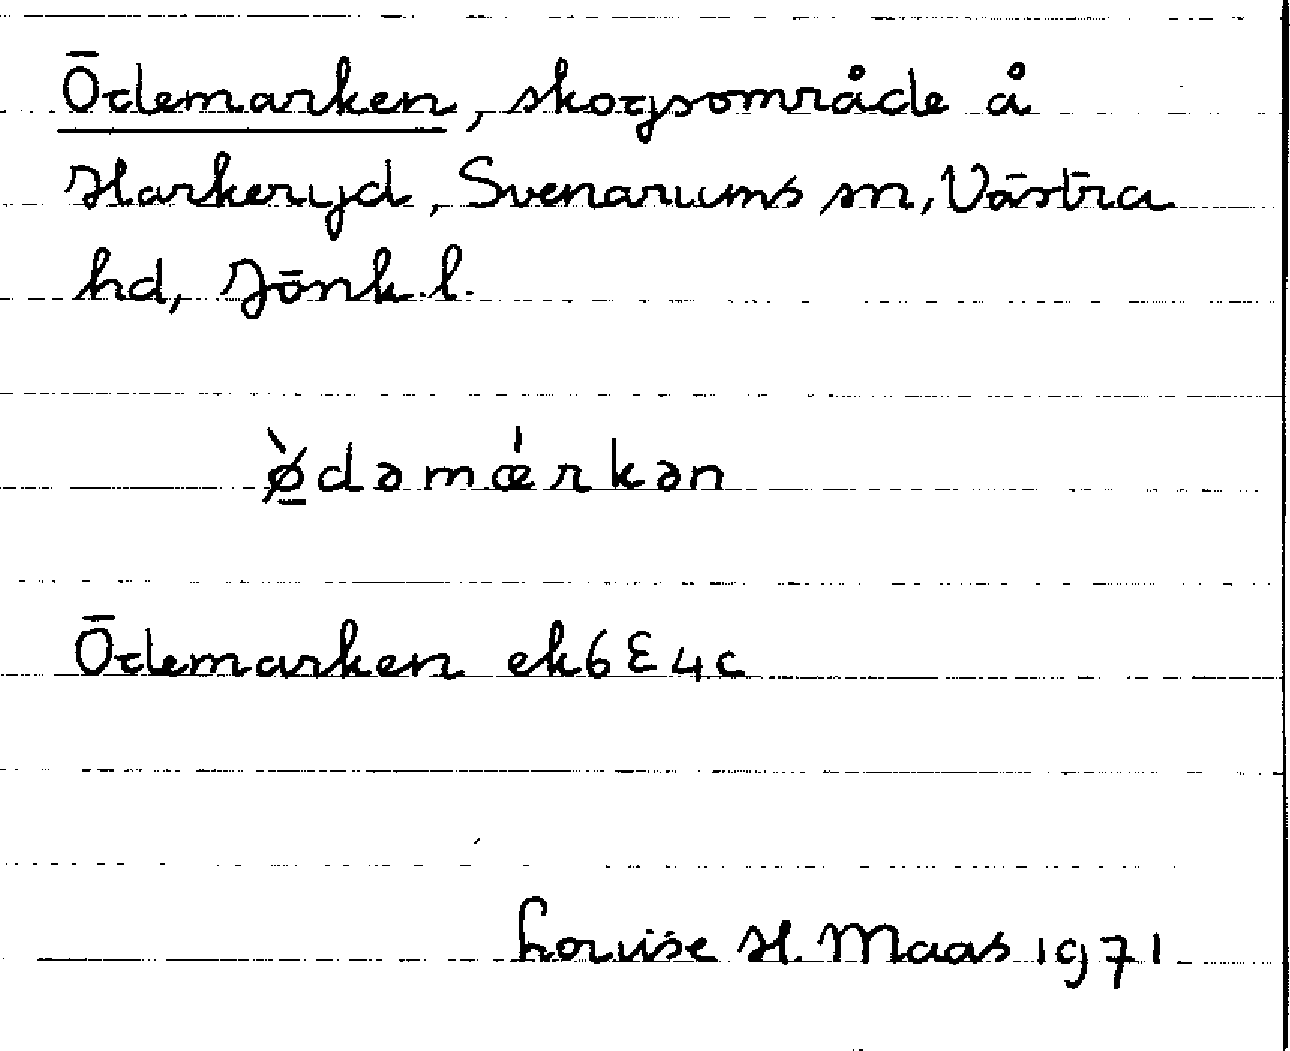 Ödemarken, skogsområde å
Harkeryd, Svenarums sn, Västra
hd, Jönk.l.
ø̠̀dəmœ́rkən
Ödemarken ek6E4c
Louise H. Maas 1971